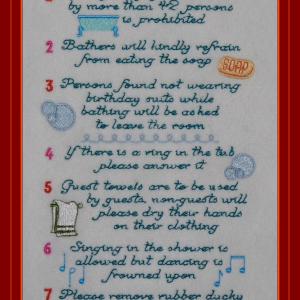 by more than 42 persons
is prohibited
2 Bathers will kindly refrain
from eating the soap
SOAP
3 Persons found not wearing
birthday suits while
bathing will be asked
to leave the room
4 If there is a ring in the tub
please answer it
5 Guest towels are to be used
by guests, non-guests will
please dry their hands
on their clothing
6 Singing in the shower is
allowed but dancing is
frowned upon
7 Please remove rubber ducky